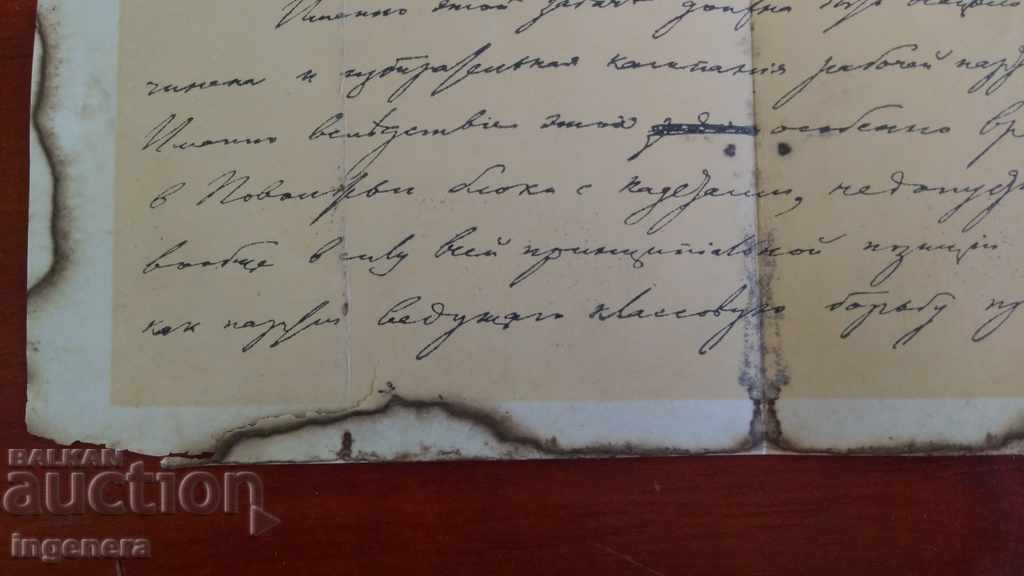 Именно этой задаче должна быть
чинена и избирательная кампания рабочей
Именно вслѣдствіе этой особенно
в Поволжьи блоки с кадетами,
вообще в виду всей принципіальной позиціи
как партіи ведущей классовую борьбу
BALKAN
auction
ingenera